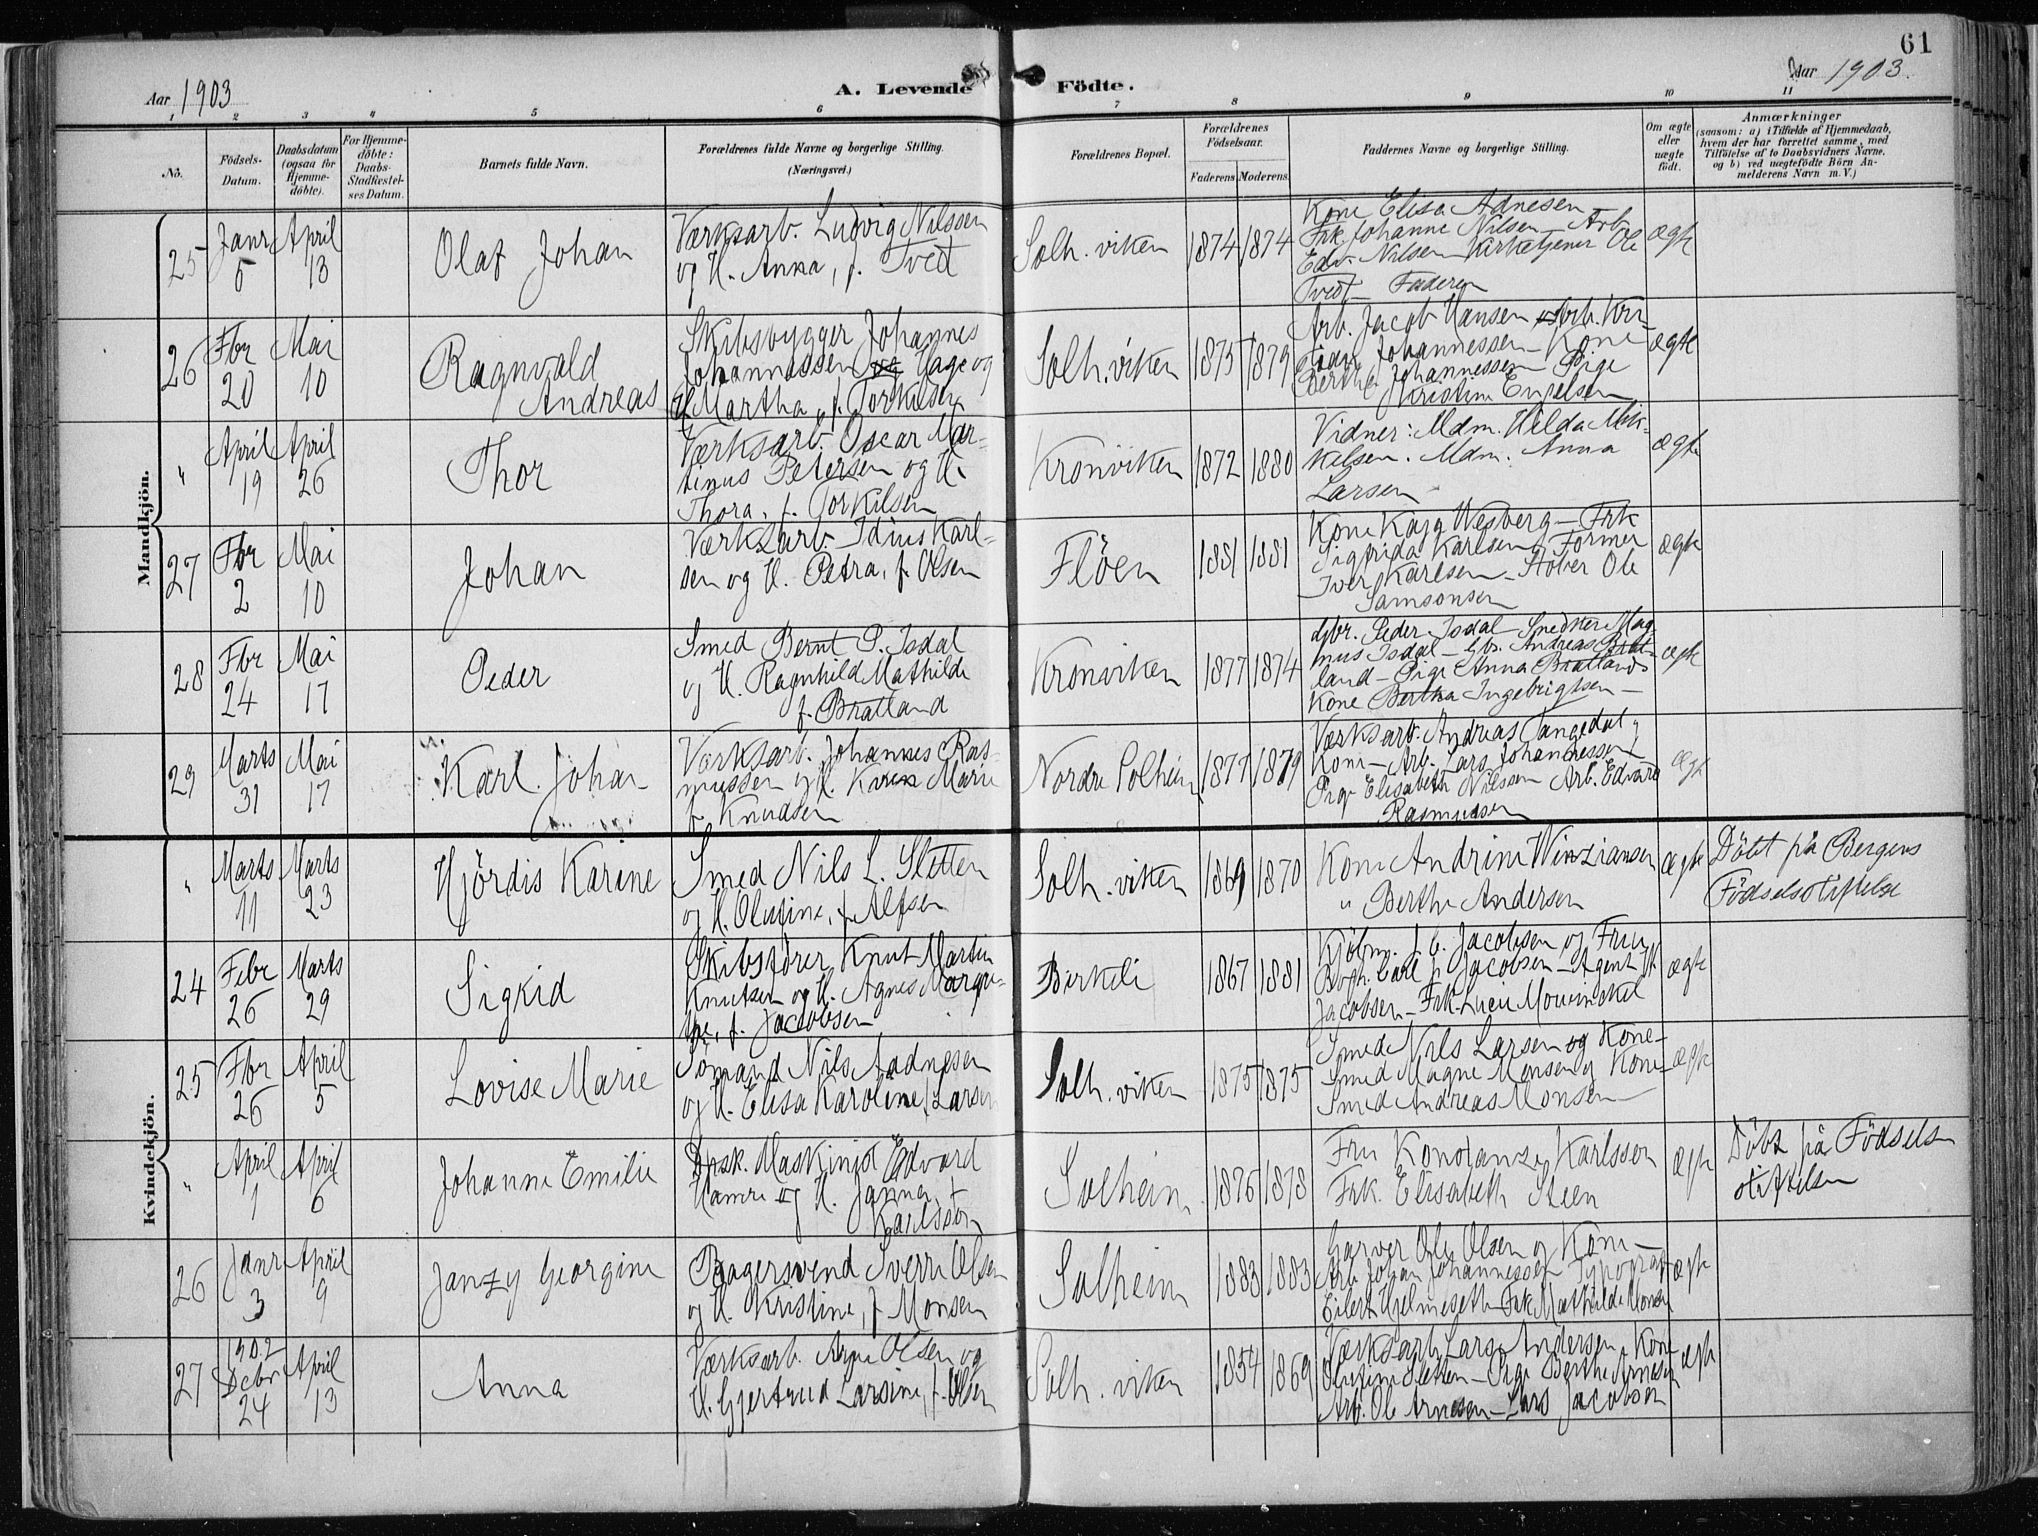 61
Aar 1903
A. Levende Födte.
Aar 1903.
1 2 3 4 5 6 7 8 9 10 11
No.
Födsels-Datum.
Daabsdatum (ogsaa for Hjemme-döbte).
For Hjemme-döbte: Daabs-Stadfæstel-ses Datum.
Barnets fulde Navn.
Forældrenes fulde Navne og borgerlige Stilling.
(Næringsvei.)
Forældrenes Bopæl.
Forældrenes Födselsaar.
Faderens Moderens
Faddernes Navne og borgerlige Stilling.
Om ægte eller uægte födt.
Anmærkninger
(saasom: a) i Tilfælde af Hjemmedaab, hvem der har forrettet samme, med Tilföielse af to Daabsvidners Navne, og b) ved uægtefödte Börn An-melderens Navn m. V.)
Mandkjön.
25 Janr 5 April 13
Olaf Johan
Værksarb. Ludvig Nilssen
og H. Anna, f. Tvedt
Solh. viken 1874 1874
Kone Elisa Adnesen
Frk. Johanne Nilsen - Arb.
Edv. Nilsen Kirketjener Ole
Tvedt - Faderen
ægte
26 Fbr 20 Mai 10
Ragnvald
Andreas
Skibsbygger Johannes
Johannessen Hage og
H. Martha, f. Torkilsen
Solh. viken 1875 1879
Arb. Jacob Hansen Arb. Kri-
stian Johannessen - Kone
Berthe Johannessen Pige
Kristine Engelsen
ægte
" April 19 April 26
Thor
Værksarb. Oscar Mar-
tinus Petersen og H.
Thora, f. Torkilsen
Kronviken 1872 1880
Vidner: Mdm. Hilda Mik-
kelsen. Mdm. Anna
Larsen
ægte
27 Fbr 2 Mai 10
Johan
Værksarb. Idius Karl-
sen og H. Petra, f. Olsen
Flöen 1881 1881
Kone Kaja Wesberg - Frk
Sigfrida Karlsen Former
Iver Karlsen - Stöber Ole
Samsonsen
ægte
28 Fbr 24 Mai 17
Peder
Smed Bernt P. Isdal
og H. Ragnhild Mathilde
f. Bratland
Kronviken 1877 1874
Gbr. Peder Isdal - Snedker Mag
nus Isdal - Gbr. Andreas Brat-
land - Pige Anna Bratland
Kone Bertha Ingebrigtsen -
ægte
29 Marts 31 Mai 17
Karl Johan
Værksarb. Johannes Ras-
mussen og H. Karen Marie
f. Knudsen
Nordre Solheim 1877 1879
Værksarb. Andreas Tangedal og
Kone - Arb. Lars Johannessen
Pige Elisabeth Nilssen Arb. Edvard
Rasmussen
ægte
Kvindekjön.
" Marts 11 Marts 23
Hjördis Karine
Smed Nils L. Sletten
og H. Olufine, f. Alfsen
Solh. viken 1869 1870
Kone Andrine Winziansen
" Berthe Andersen
ægte
Döbt på Bergens
Födselsstiftelse
24 Febr 26 Marts 29
Sigrid
Skibsförer Knut Martin
Knutsen og H. Agnes Margre-
the, f. Jacobsen
Birkeli 1867 1881
Kjöbm. J. C. Jacobsen og Fru
Bogh. Carl Jacobsen - Agent
Jacobsen - Frk. Lucie Mowinckel
ægte
25 Fbr 26 April 5
Lovise Marie
Sömand Nils Aadnesen
og H. Elisa Karoline f. Larsen
Solh. viken 1875 1875
Smed Nils Larsen og Kone -
Smed Magne Monsen og Kone -
Smed Andreas Monsen
ægte
" April 1 April 6
Johanne Emilie
Maskinist Edvard
Hamre og H. Janna, f.
Karlsson
Solheim 1876 1878
Fru Konstanze Karlsson
Frk. Elisabeth Steen
ægte
Döbt på Födsels
stiftelsen
26 Janr 3 April 9
Janzy Georgine
Bagersvend Sverre Olsen
og H. Kristine, f. Monsen
Solheim 1883 1883
Garver Ole Olsen og Kone -
Arb. Johan Johannessen Typograf
Eilert Hjelmeseth Frk. Mathilde Monsen
ægte
27 1902 Debr 24 April 13
Anna
Værksarb. Arne Olsen og
H. Gjertrud Larsine, f. Olsen
Solh. viken 1854 1869
Værksarb. Lars Andersen Kone
Olufine Sletten - Pige Berthe Arnesen
Arb. Ole Arnesen - Lars Jacobsen
ægte